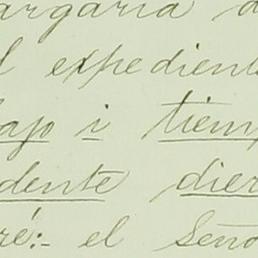 argaria a
l expediente
ajo i tiemp
dente dier
ré:- el Seño